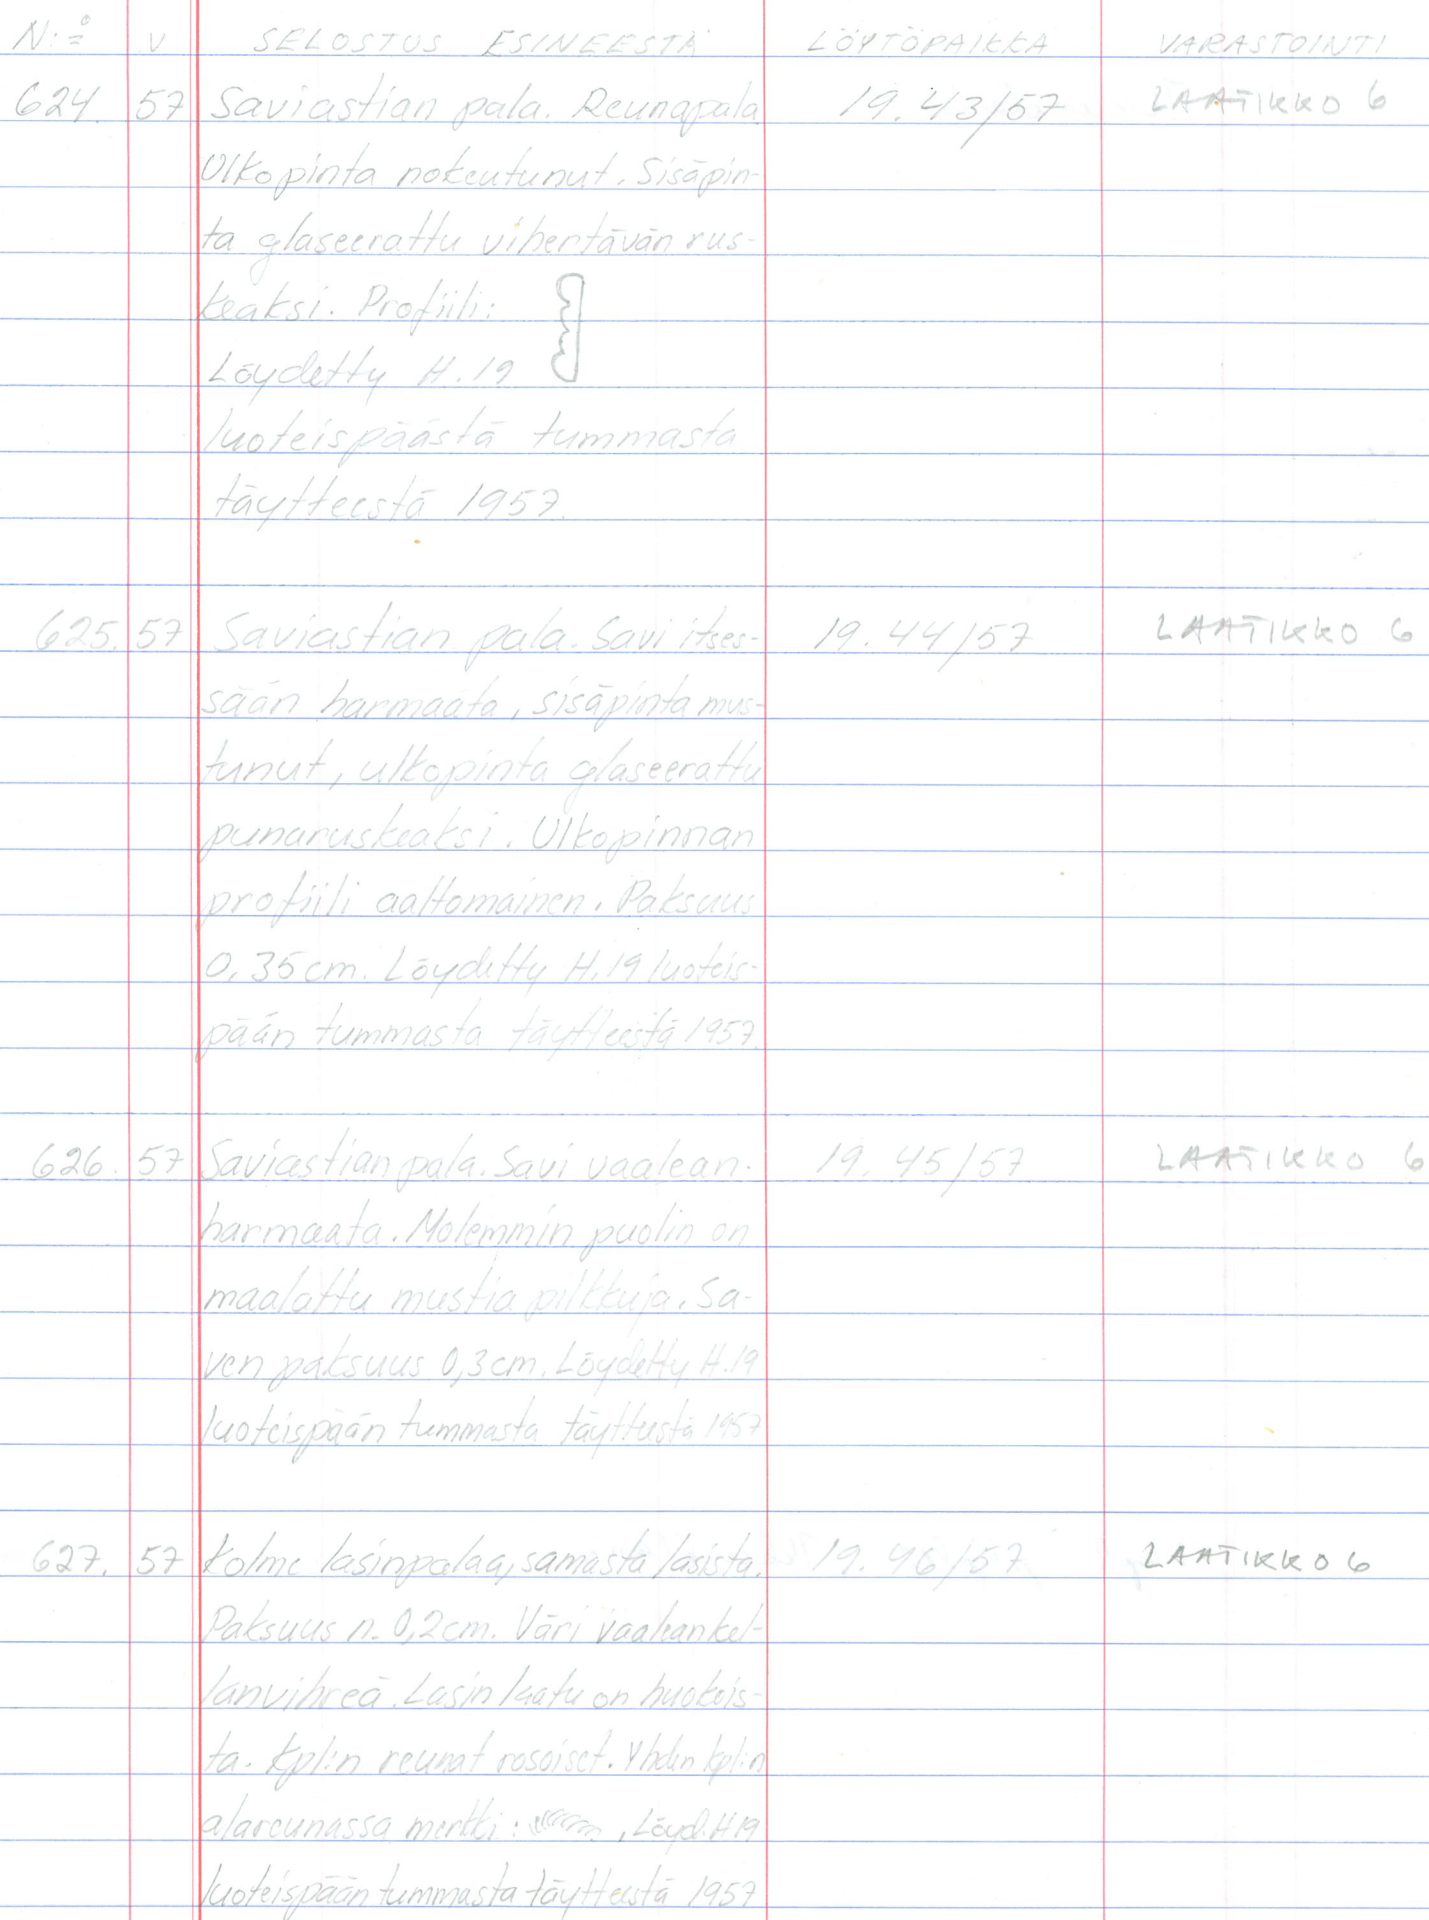 N:o V SELOSTUS ESINEESTÄ LÖYTÖPAIKKA VARASTOINTI
624. 57 Saviastian pala. Reunapala. 19. 43/57 LAATIKKO 6
Ulkopinta nokeutunut. Sisäpin-
ta glaseerattu vihertävän rus-
keaksi. Profiili:
Löydetty H.19
luoteispäästä tummasta
täytteestä 1957.
625. 57 Saviastian pala. Savi itses- 19. 44/57 LAATIKKO 6
sään harmaata, sisäpinta mus-
tunut, ulkopinta glaseerattu
punaruskeaksi. Ulkopinnan
profiili aaltomainen. Paksuus
0,35 cm. Löydetty H.19 luoteis-
pään tummasta täytteestä 1957.
626. 57 Saviastian pala. Savi vaalean- 19. 45/57 LAATIKKO 6
harmaata. Molemmin puolin on
maalattu mustia pilkkuja. Sa-
ven paksuus 0,3 cm. Löydetty H.19
luoteispään tummasta täytteestä 1957
627. 57 Kolme lasinpalaa, samasta lasista. 19. 46/57 LAATIKKO 6
Paksuus n. 0,2 cm. Väri vaaleankel-
lanvihreä. Lasin laatu on huokois-
ta. Kpl:n reunat rosoiset. Yhden kpl:n
alareunassa merkki: , Löyd. H 19
luoteispään tummasta täytteestä 1957